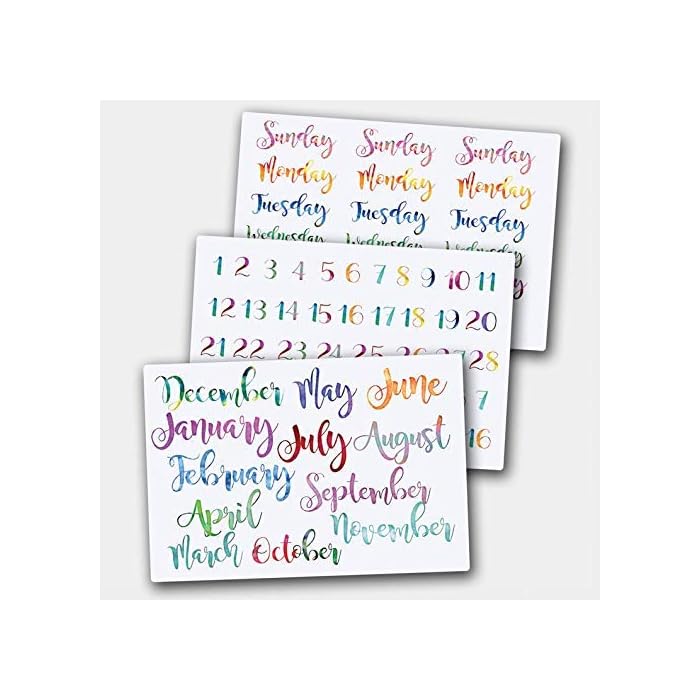 Sunday Sunday Sunday
Monday Monday Monday
Tuesday Tuesday Tuesday
Wednesday Wednesday Wednesday
1 2 3 4 5 6 7 8 9 10 11
12 13 14 15 16 17 18 19 20
21 22 23 24 25 26 28
7
16
December May June
January July August
February September
April November
March October